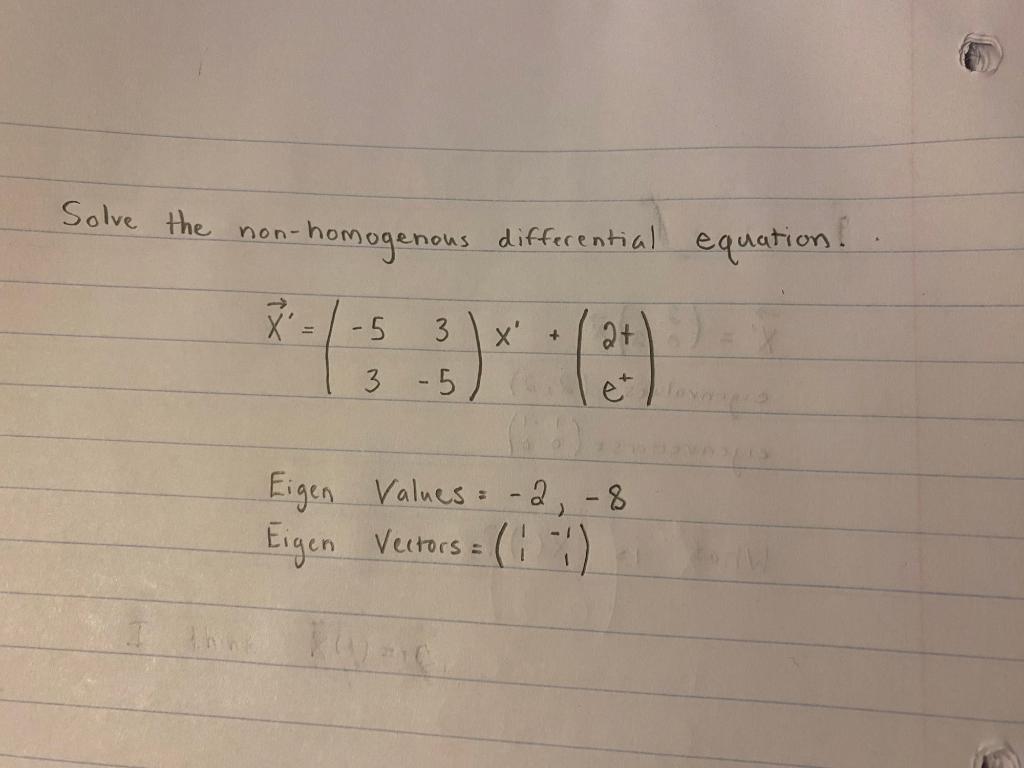 Solve the non-homogenous differential equation!
X⃗' = ( -5 3 ) x' + ( 2t )
( 3 -5 ) ( e^t )
Eigen Values = -2, -8
Eigen Vectors = ( 1 -1 )
( 1 1 )
I think